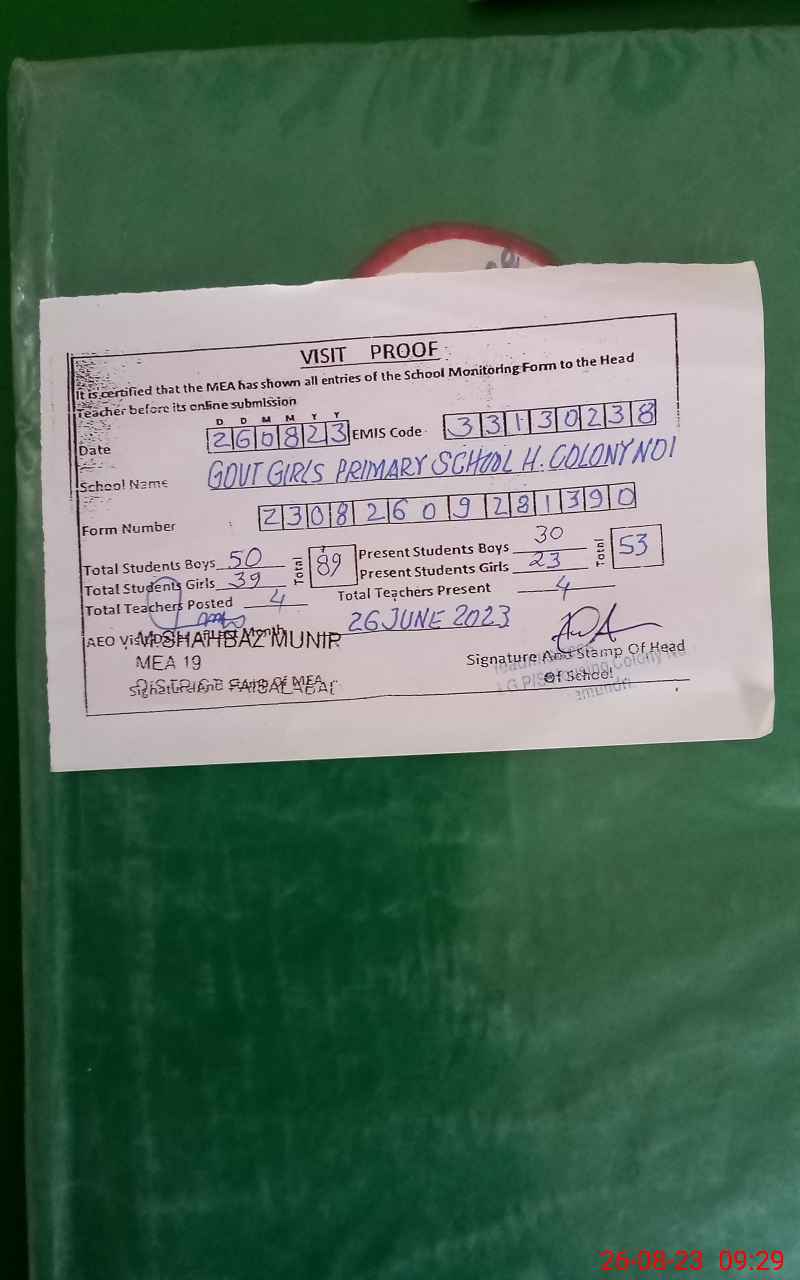 VISIT PROOF
It is certified that the MEA has shown all entries of the School Monitoring Form to the Head
Teacher before its online submission
D D M M Y Y
Date 260823 EMIS Code 33130238
School Name GOVT GIRLS PRIMARY SCHOOL H. COLONY NO1
Form Number 23082609281390
Total Students Boys 50 Total 89 Present Students Boys 30 Total 53
Total Students Girls 39 Present Students Girls 23
Total Teachers Posted 4 Total Teachers Present 4
AEO 26 JUNE 2023
M.SHAHBAZ MUNIR
MEA 19
DISTRICT FAISALABAD
Signature And Stamp Of MEA
Signature And Stamp Of Head
Of School
26-08-23 09:29